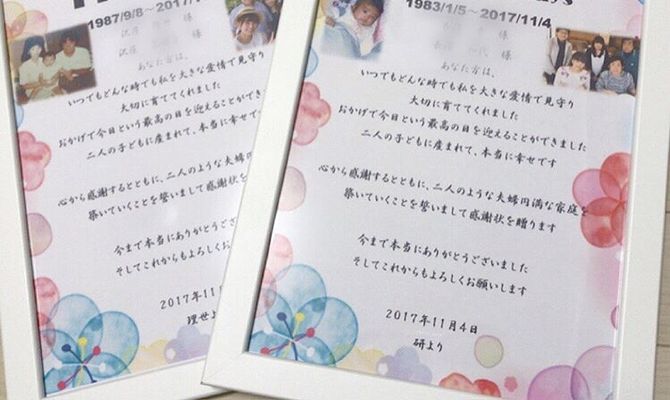 1987/9/8～2017/11/4
様
様
あなた方は、
いつでもどんな時でも私を大きな愛情で見守り
大切に育ててくれました
おかげで今日という最高の日を迎えることができ
二人の子どもに産まれて、本当に幸せです
心から感謝するとともに、二人のような夫婦円満な
築いていくことを誓いまして感謝状を贈ります
今まで本当にありがとうござい
そしてこれからもよろしくお願
2017年11月
理世よ
1983/1/5～2017/11/4
様
様
あなた方は、
いつでもどんな時でも私を大きな愛情で見守り
大切に育ててくれました
おかげで今日という最高の日を迎えることができました
二人の子どもに産まれて、本当に幸せです
心から感謝するとともに、二人のような夫婦円満な家庭を
築いていくことを誓いまして感謝状を贈ります
今まで本当にありがとうございました
そしてこれからもよろしくお願いします
2017年11月4日
研より